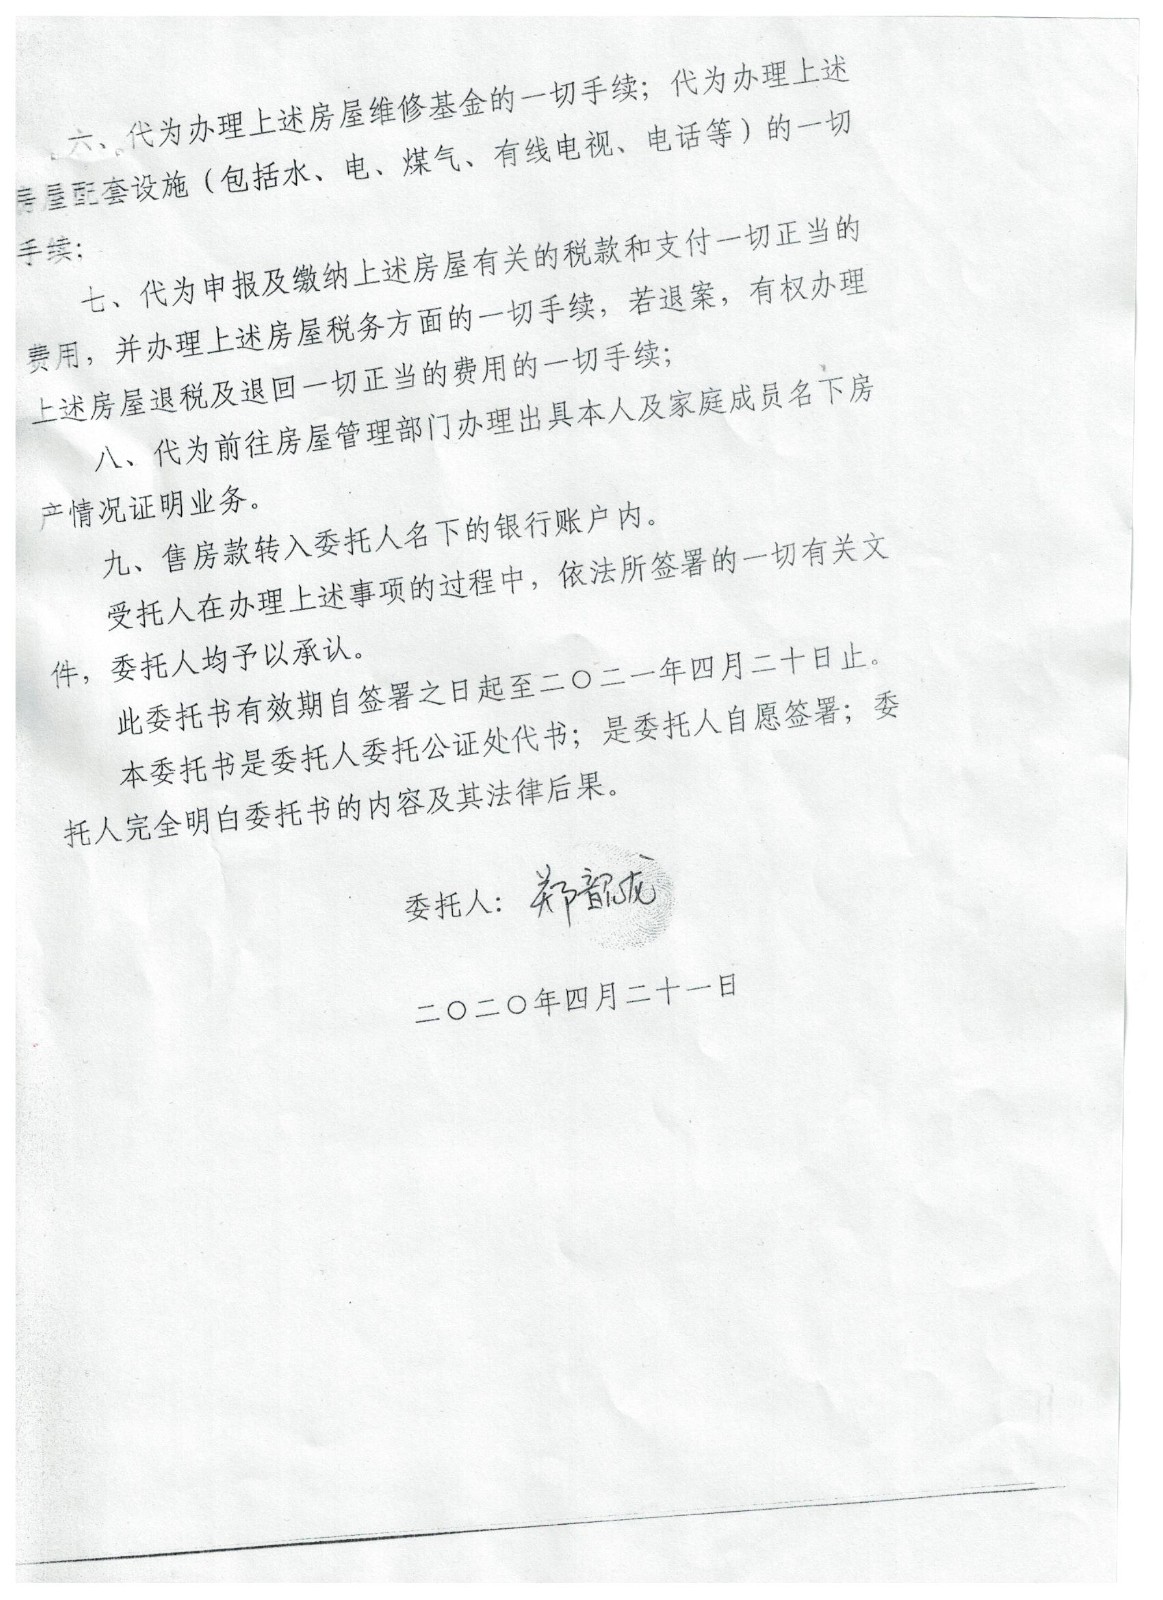 六、代为办理上述房屋维修基金的一切手续；代为办理上述
房屋配套设施（包括水、电、煤气、有线电视、电话等）的一切
手续；
七、代为申报及缴纳上述房屋有关的税款和支付一切正当的
费用，并办理上述房屋税务方面的一切手续，若退案，有权办理
上述房屋退税及退回一切正当的费用的一切手续；
八、代为前往房屋管理部门办理出具本人及家庭成员名下房
产情况证明业务。
九、售房款转入委托人名下的银行账户内。
受托人在办理上述事项的过程中，依法所签署的一切有关文
件，委托人均予以承认。
此委托书有效期自签署之日起至二〇二一年四月二十日止。
本委托书是委托人委托公证处代书；是委托人自愿签署；委
托人完全明白委托书的内容及其法律后果。
委托人：郑韶龙
二〇二〇年四月二十一日